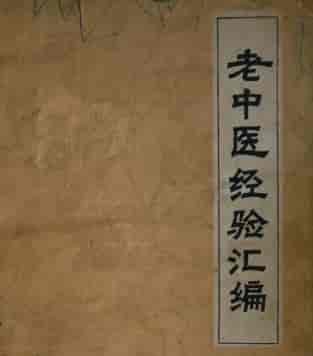 老中医经验汇编